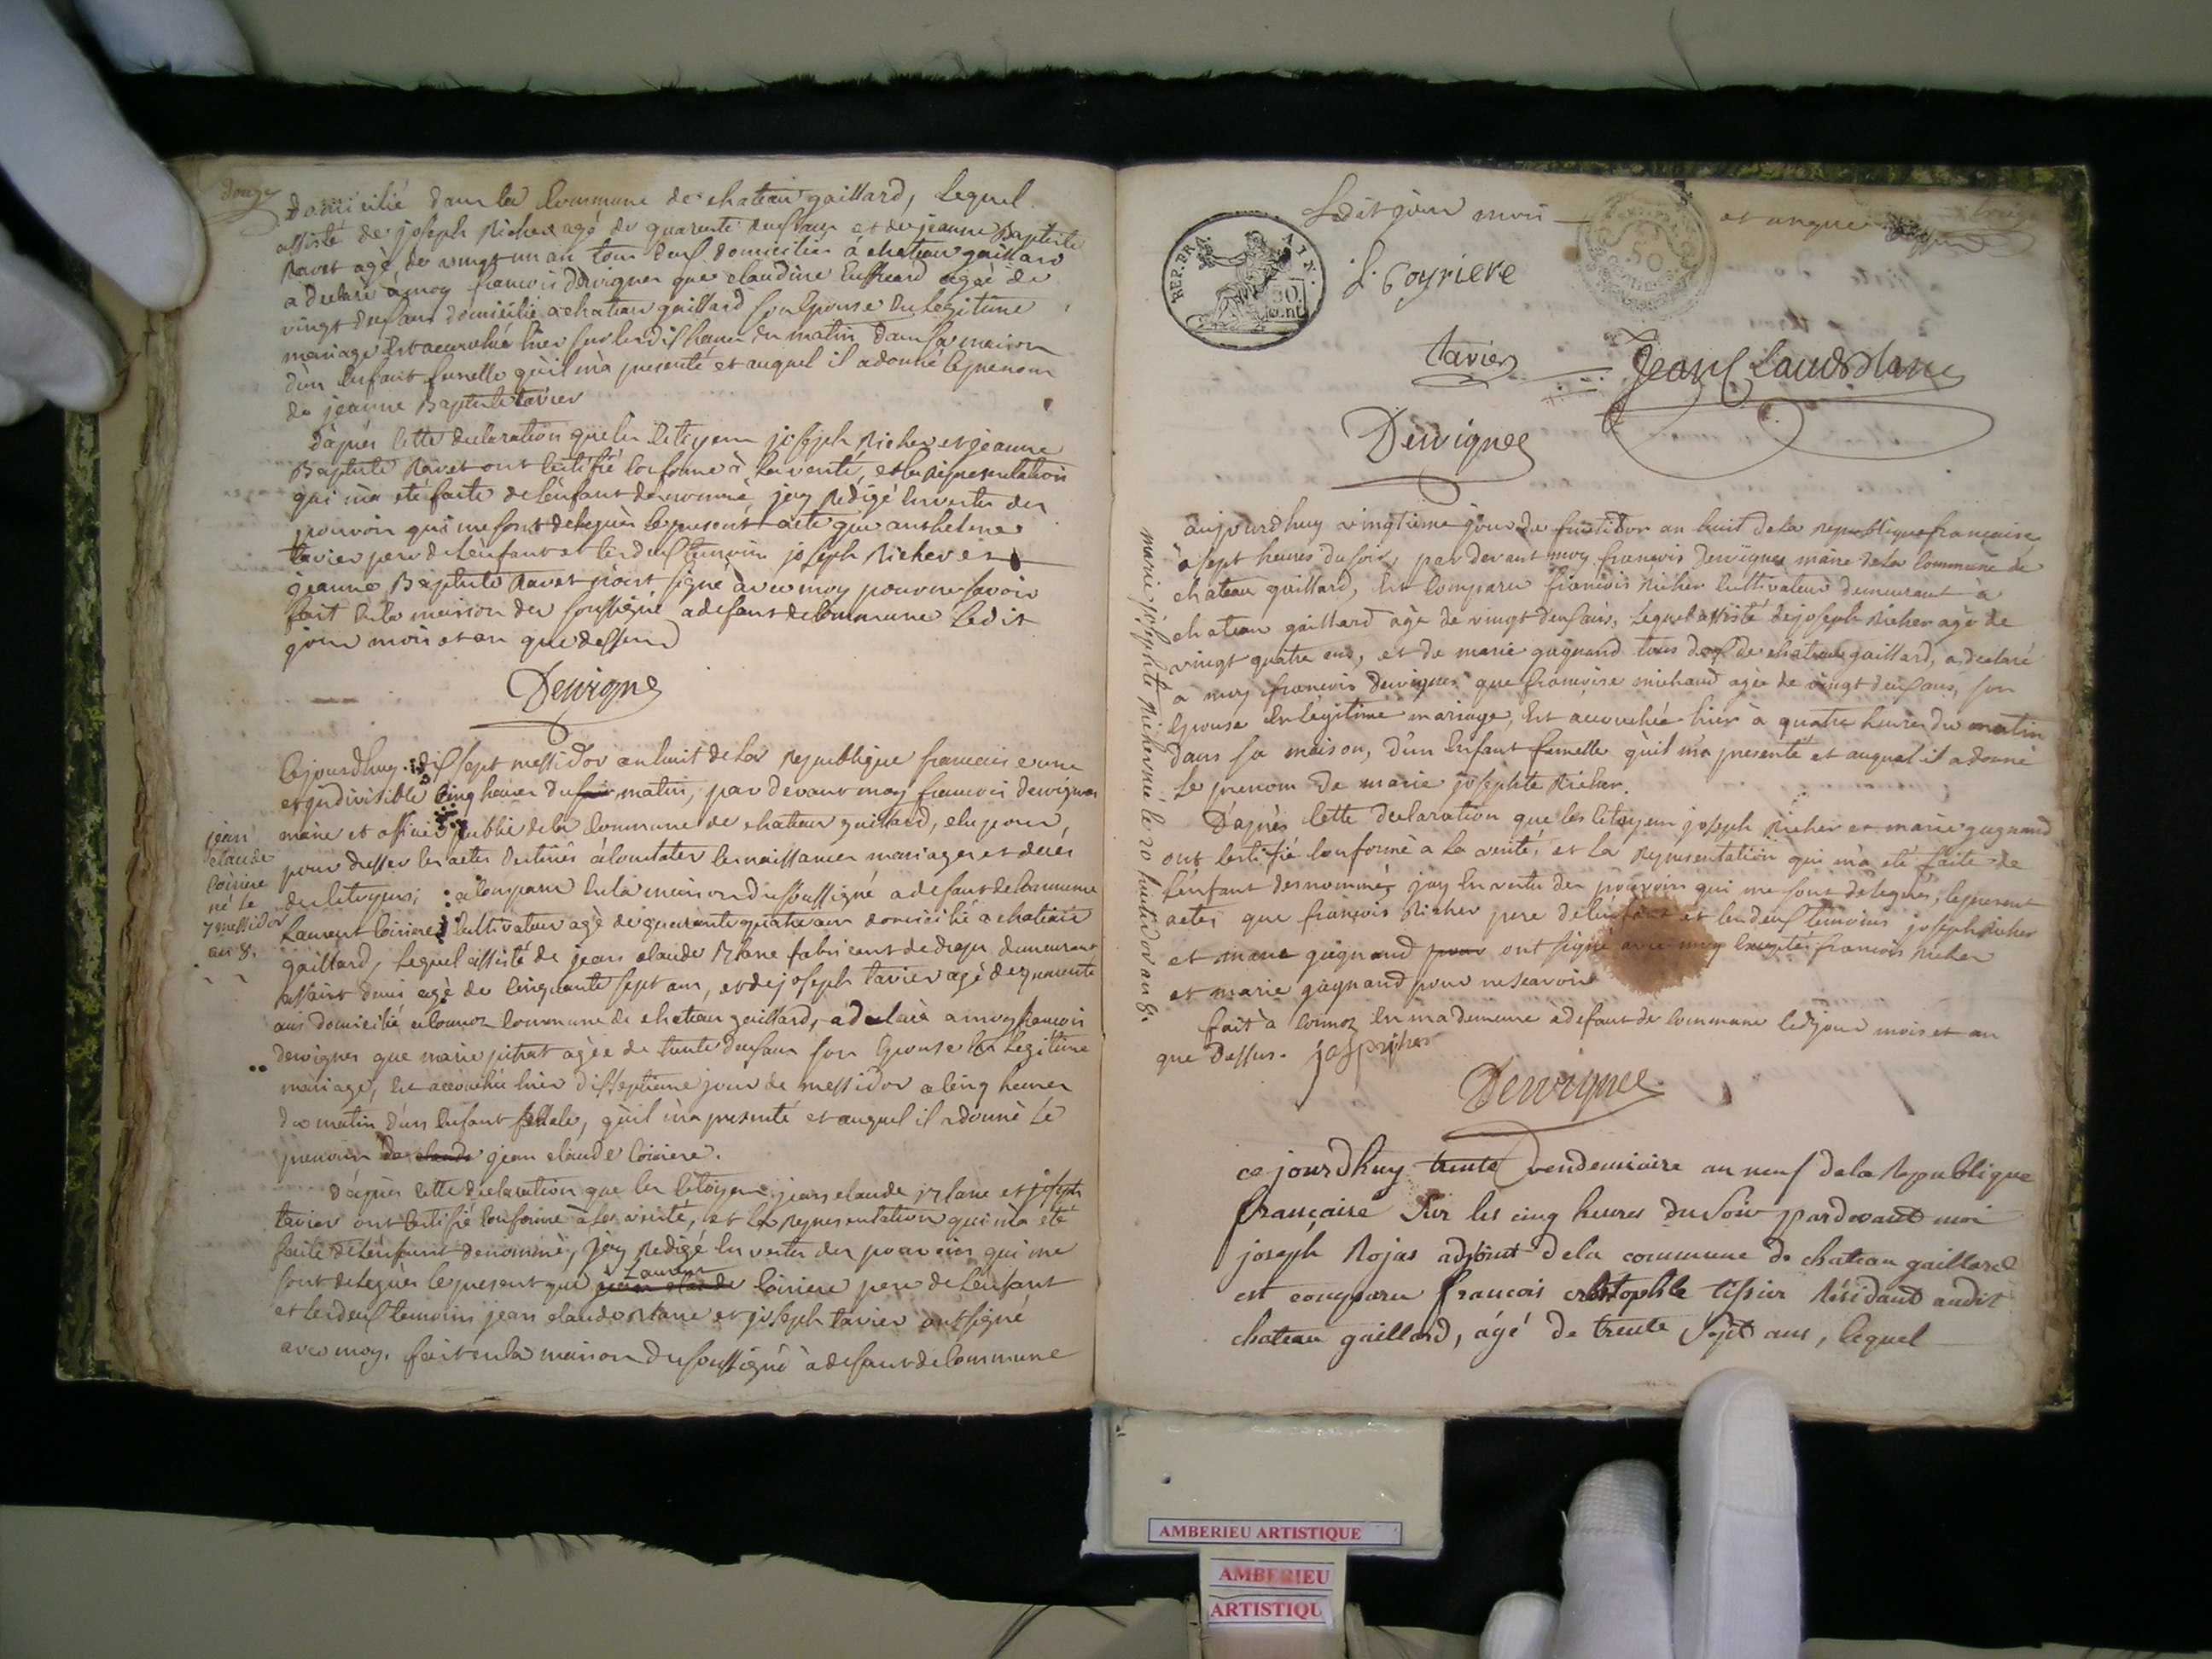 douze
Domicilié dans la Commune de chateau gaillard, Lequel
assisté de joseph Richer agé de quarente deux ans et de jeanne Baptiste
Ravet agé de vingt un an tous deux domiciliés à chateau gaillard
a declaré à moy francois dervignes que claudine agée de
vingt deux ans domicilié a chateau gaillard son Epouse En legitime
mariage Est accouchée hier sur les dix heures du matin dans sa maison
d'un Enfant femelle qu'il m'a presenté et auquel il a donné le prenom
de jeanne Baptiste tavier
D'aprés Cette declaration que les Citoyens joseph Richer et jeanne
Baptiste Ravet ont Certifié Conforme à la verité, et la Representation
qui m'a été faite de l'enfant denommé jay Redigé En vertu des
pouvoirs qui me sont delegués le present acte que anthelme
tavier pere de l'enfant et les deux temoins joseph Richer et
jeanne Baptiste Ravet n'ont signé avec moy pour ne savoir
fait En la maison du soussigné a defaut de Commune Ledit
jour mois et an que dessus
Dervigne
Cejourdhuy dixsept messidor an huit de la Republique francaise une
et indivisible Cinq heures du soir matin, par devant moy francois dervignes
maire et officier public de la Commune de chateau gaillard, elu pour
pour dresser les actes destinés à Constater les naissances mariages et decés
des Citoyens; a Comparu En la maison du soussigné a defaut de Commune
Laurent Coiriere Cultivateur agé de quarente quatre ans domicilié a chateau
gaillard, Lequel assisté de jean claude Blanc fabricant de draps demeurant
agé de Cinquante sept ans, et de joseph tavier agé de quarente
ans domicilié a Cormoz Commune de chateau gaillard, a declaré a moy francois
dervignes que marie pitrat agée de trente deux ans son Epouse En legitime
mariage, Est accouchée hier dixseptieme jour de messidor a Cinq heures
du matin d'un Enfant , qu'il m'a presenté et auquel il a donné Le
prenom de claude jean claude Coiriere.
D'aprés Cette declaration que les Citoyens jean claude Blanc et joseph
tavier ont Certifié Conforme à la verité, et la Representation qui m'a été
faite de l'enfant denommé, jay Redigé En vertu des pouvoirs qui me
sont delegués le present que jean claude Laurent Coiriere pere de l'enfant
et les deux temoins jean claude Blanc et joseph tavier ont signé
avec moy. fait en la maison du soussigné à defaut de Commune
jean
claude
Coiriere
né le
7 messidor
an 8.
Ledit jour mois et an que dessus
REP. FRA. AIN.
50 cent
50
L. Coyriere
tavier
Jean Claud Blanc
Dervignes
marie josephte Richer née le 20 fructidor an 8.
aujourdhuy vingtieme jour de fructidor an huit de la republique francaise
à sept heures du soir, par devant moy francois Dervignes maire de la Commune de
chateau gaillard, Est Comparu francois Richer Cultivateur demeurant à
chateau gaillard âgé de vingt deux ans, Lequel assisté de joseph Richer âgé de
vingt quatre ans, et de marie gagnand tous deux de chateau gaillard, a declaré
a moy francois Dervignes que francoise michaud agée de vingt deux ans, son
Epouse En légitime mariage, Est accouchée hier à quatre heures du matin
dans sa maison, d'un Enfant femelle qu'il m'a presenté et auquel il a donné
Le prenom de marie josephte Richer.
D'aprés Cette declaration que les Citoyens joseph Richer et marie gagnand
ont Certifié Conforme à la verité, et la Representation qui m'a été faite de
l'enfant desnommés jay En vertu des pouvoirs qui me sont delegués, le present
actes que françois Richer pere de l'enfant et les deux temoins joseph Richer
et marie gagnand pour ont signé avec moy Exceptés francois Richer
et marie gagnand pour ne scavoir
fait à Cormoz En ma demeure à defaut de Commune ledit jour mois et an
que Dessus. josp richer
Dervignes
ce jourdhuy trente vendemiaire an neuf de la Republique
française Sur les cinq heures du Soir pardevant moi
joseph Rojas adjoint de la commune de chateau gaillard
est comparu francois tissier Résidant audit
chateau gaillard, âgé de trente Sept ans, lequel
AMBERIEU ARTISTIQUE
AMBERIEU
ARTISTIQU